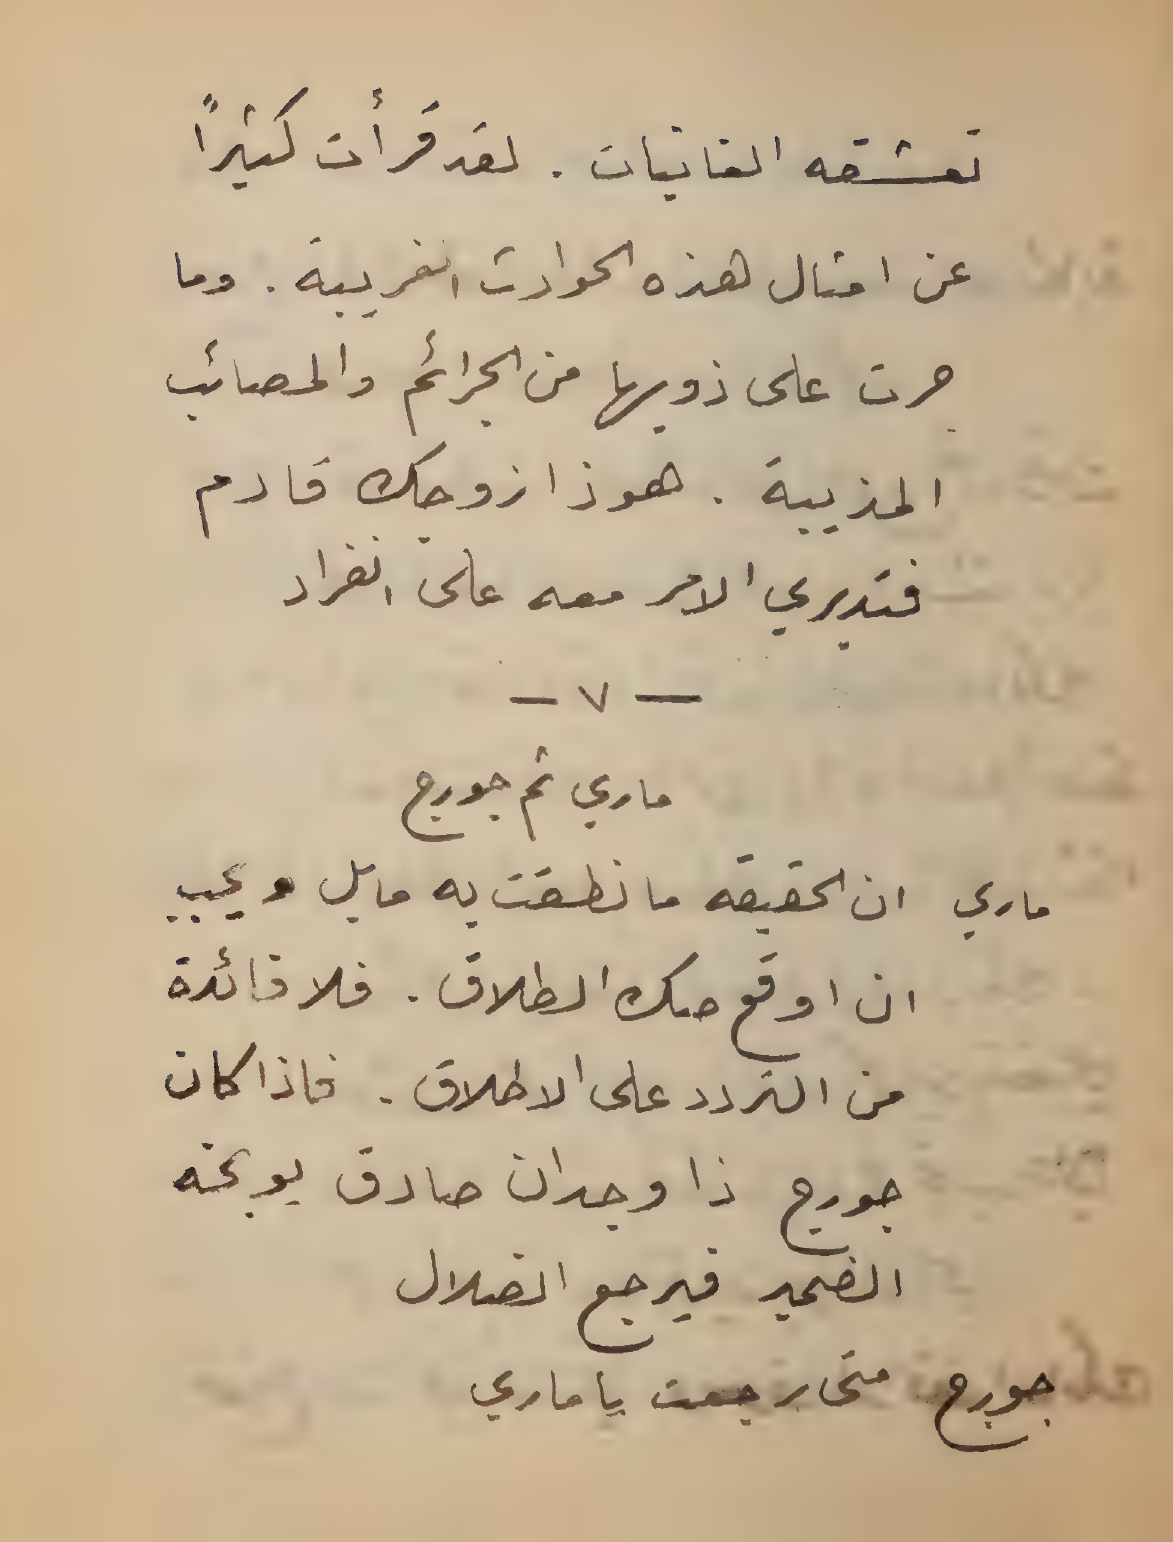 تعشقه الغانيات . لقد قرأت كثيراً
عن امثال هذه الحوادث الغريبة . وما
جرت على ذويها من الجرائم والمصائب
المذيبة . هوذا زوجك قادم
فتديري الامر معه على انفراد
— ٧ —
ماري ثم جورج
ماري ان الحقيقه ما نطقت به مايل ويجب
ان اوقع صك الطلاق . فلا فائدة
من التردد على الاطلاق . فاذا كان
جورج ذا وجدان صادق يوبخه
الضمير فيرجع الضلال
جورج متى رجعت يا ماري